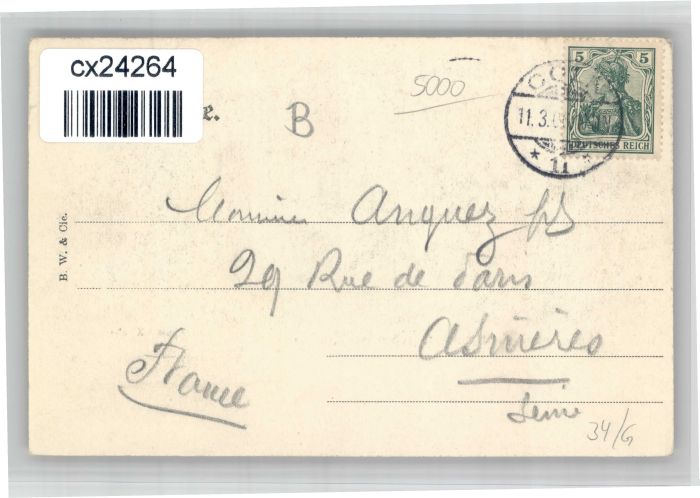 cx24264
e.
B
5000
11.3.0
* 11 *
5 5
DEUTSCHES REICH
B. W. & Cie.
Monsieur Anquez fils
29 Rue de Paris
Asnières
Seine
France
34/G